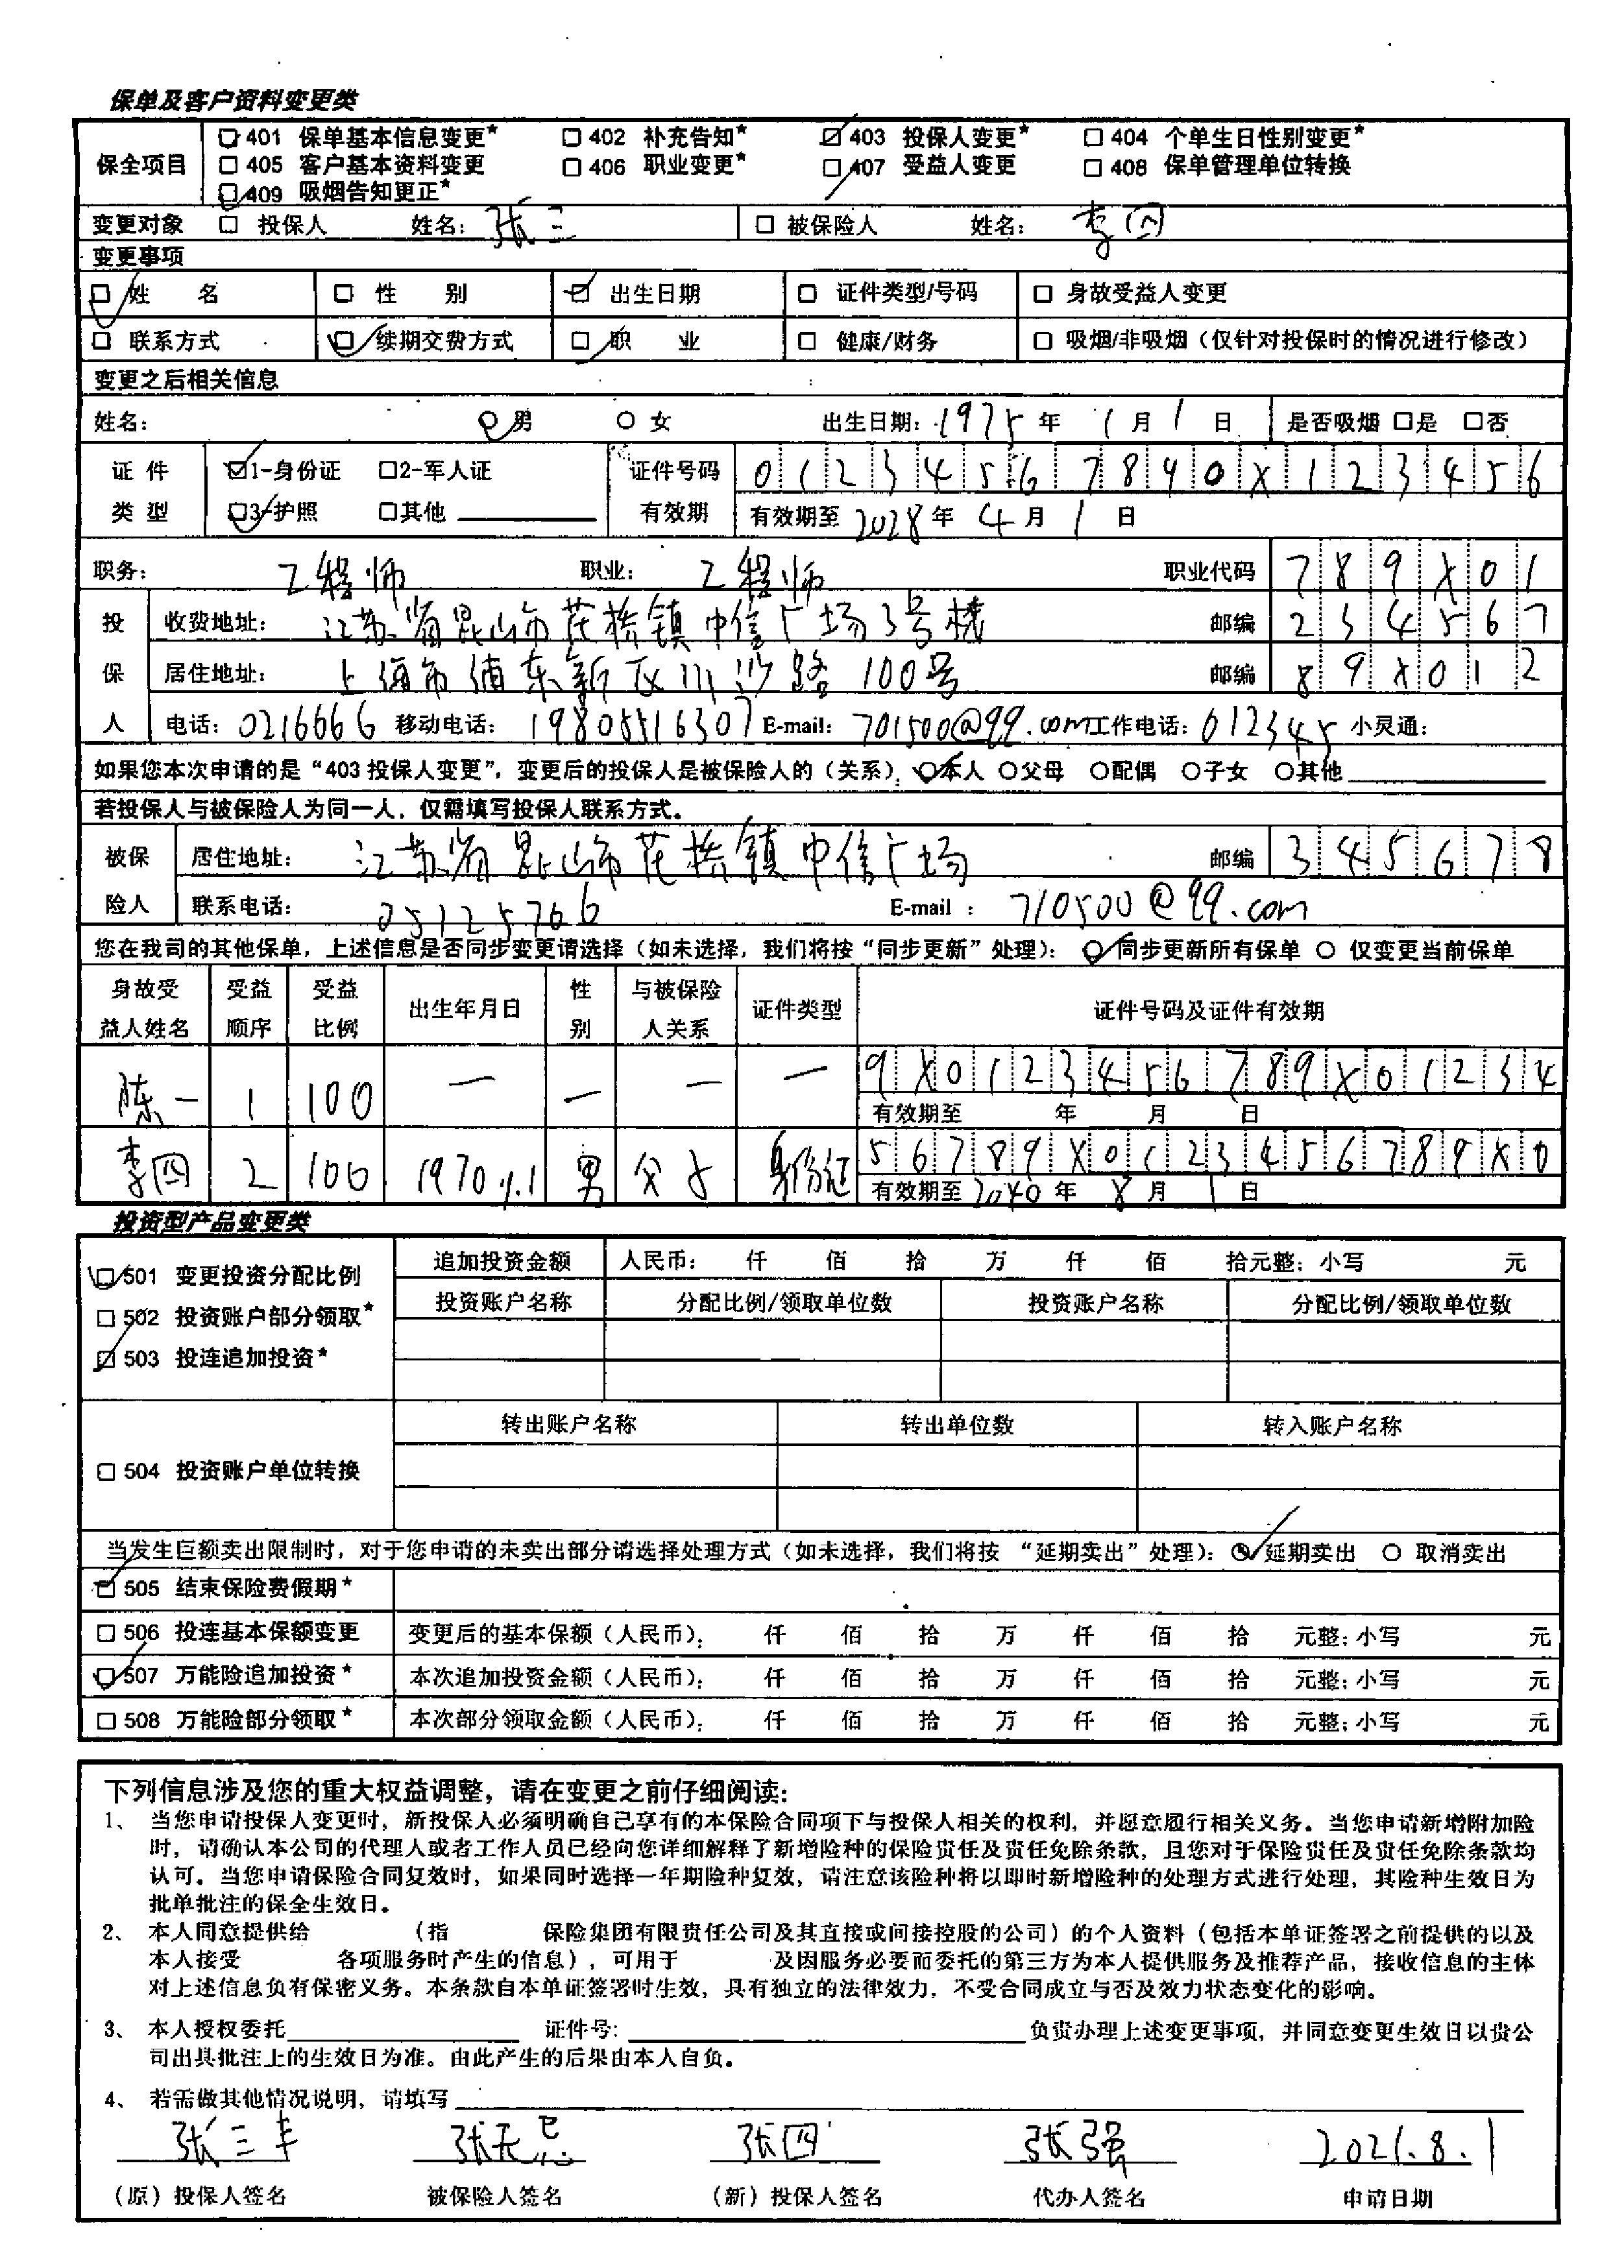 保单及客户资料变更类
保全项目 ☑401 保单基本信息变更* □402 补充告知* ☑403 投保人变更* □404 个单生日性别变更*
□405 客户基本资料变更 □406 职业变更* ☑407 受益人变更 □408 保单管理单位转换
☑409 吸烟告知更正*
变更对象 □ 投保人 姓名: 张三 □ 被保险人 姓名: 李四
变更事项
☑ 姓 名 □ 性 别 ☑ 出生日期 □ 证件类型/号码 □ 身故受益人变更
□ 联系方式 ☑ 续期交费方式 ☑ 职 业 □ 健康/财务 □ 吸烟/非吸烟（仅针对投保时的情况进行修改）
变更之后相关信息
姓名: ☑男 ○女 出生日期: 1975 年 1 月 1 日 是否吸烟 □是 □否
证 件 ☑1-身份证 □2-军人证 证件号码 01234567890X123456
类 型 ☑3-护照 □其他 有效期 有效期至 2028 年 4 月 1 日
职务: 工程师 职业: 工程师 职业代码 789X01
投 收费地址: 江苏省昆山市花桥镇中信广场3号楼 邮编 234567
保 居住地址: 上海市浦东新区川沙路100号 邮编 89X012
人 电话: 0216666 移动电话: 19805516307 E-mail: 701500@qq.com 工作电话: 012345 小灵通:
如果您本次申请的是“403 投保人变更”，变更后的投保人是被保险人的（关系）: ☑本人 ○父母 ○配偶 ○子女 ○其他
若投保人与被保险人为同一人，仅需填写投保人联系方式。
被保 居住地址: 江苏省昆山市花桥镇中信广场 邮编 345678
险人 联系电话: 05125766 E-mail : 710500@qq.com
您在我司的其他保单，上述信息是否同步变更请选择（如未选择，我们将按“同步更新”处理）: ☑同步更新所有保单 ○ 仅变更当前保单
身故受 受益 受益 出生年月日 性 与被保险 证件类型 证件号码及证件有效期
益人姓名 顺序 比例 别 人关系
陈一 1 100 — — — — 9X0123456789X01234
有效期至 年 月 日
李四 2 100 1970.1.1 男 父子 身份证 56789X0123456789X0
有效期至 2040 年 8 月 1 日
投资型产品变更类
☑501 变更投资分配比例 追加投资金额 人民币: 仟 佰 拾 万 仟 佰 拾元整; 小写 元
□502 投资账户部分领取* 投资账户名称 分配比例/领取单位数 投资账户名称 分配比例/领取单位数
☑503 投连追加投资*
转出账户名称 转出单位数 转入账户名称
□504 投资账户单位转换
当发生巨额卖出限制时，对于您申请的未卖出部分请选择处理方式（如未选择，我们将按 “延期卖出” 处理）: ☑延期卖出 ○ 取消卖出
☑505 结束保险费假期*
□506 投连基本保额变更 变更后的基本保额（人民币）: 仟 佰 拾 万 仟 佰 拾 元整; 小写 元
☑507 万能险追加投资* 本次追加投资金额（人民币）: 仟 佰 拾 万 仟 佰 拾 元整; 小写 元
□508 万能险部分领取* 本次部分领取金额（人民币）: 仟 佰 拾 万 仟 佰 拾 元整; 小写 元
下列信息涉及您的重大权益调整，请在变更之前仔细阅读:
1、 当您申请投保人变更时，新投保人必须明确自己享有的本保险合同项下与投保人相关的权利，并愿意履行相关义务。当您申请新增附加险
时，请确认本公司的代理人或者工作人员已经向您详细解释了新增险种的保险责任及责任免除条款，且您对于保险责任及责任免除条款均
认可。当您申请保险合同复效时，如果同时选择一年期险种复效，请注意该险种将以即时新增险种的处理方式进行处理，其险种生效日为
批单批注的保全生效日。
2、 本人同意提供给 （指 保险集团有限责任公司及其直接或间接控股的公司）的个人资料（包括本单证签署之前提供的以及
本人接受 各项服务时产生的信息），可用于 及因服务必要而委托的第三方为本人提供服务及推荐产品，接收信息的主体
对上述信息负有保密义务。本条款自本单证签署时生效，具有独立的法律效力，不受合同成立与否及效力状态变化的影响。
3、 本人授权委托 证件号: 负责办理上述变更事项，并同意变更生效日以贵公
司出具批注上的生效日为准。由此产生的后果由本人自负。
4、 若需做其他情况说明，请填写
张三丰 张无忌 张四 张强 2021.8.1
（原）投保人签名 被保险人签名 （新）投保人签名 代办人签名 申请日期